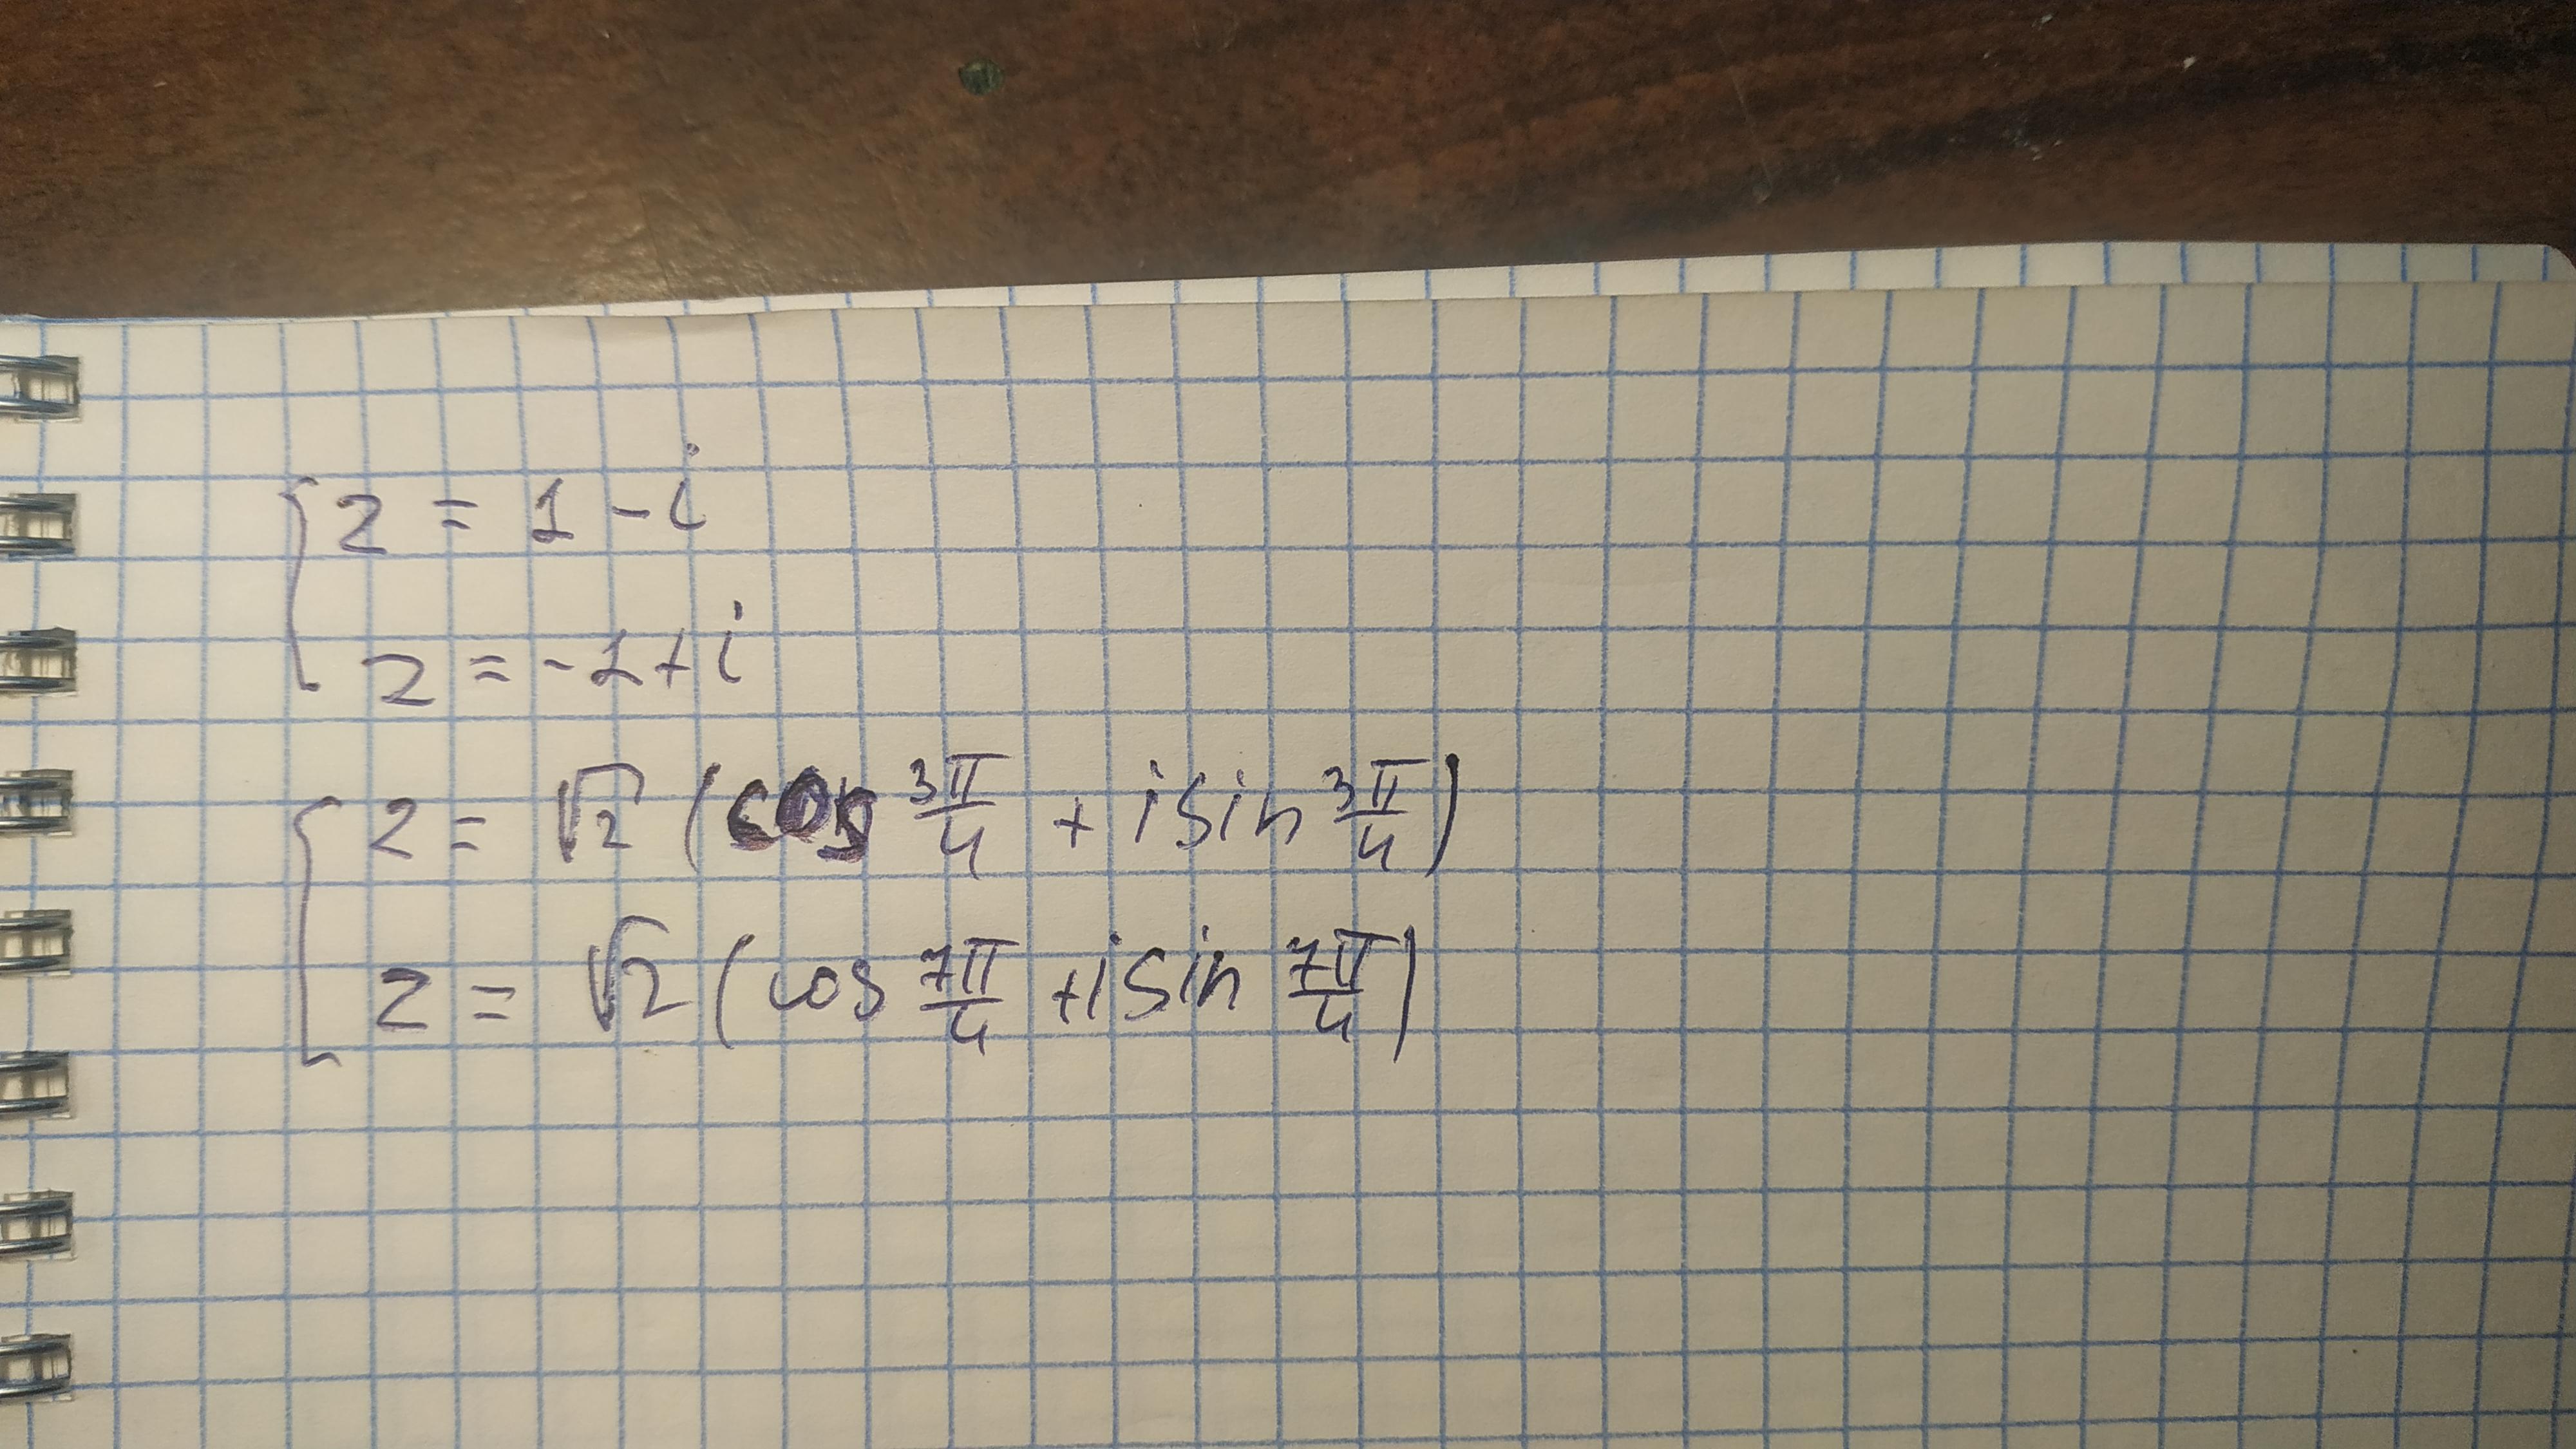 z = 1 - i
z = -1 + i
z = √2 (cos 3π/4 + i sin 3π/4)
z = √2 (cos 7π/4 + i sin 7π/4)